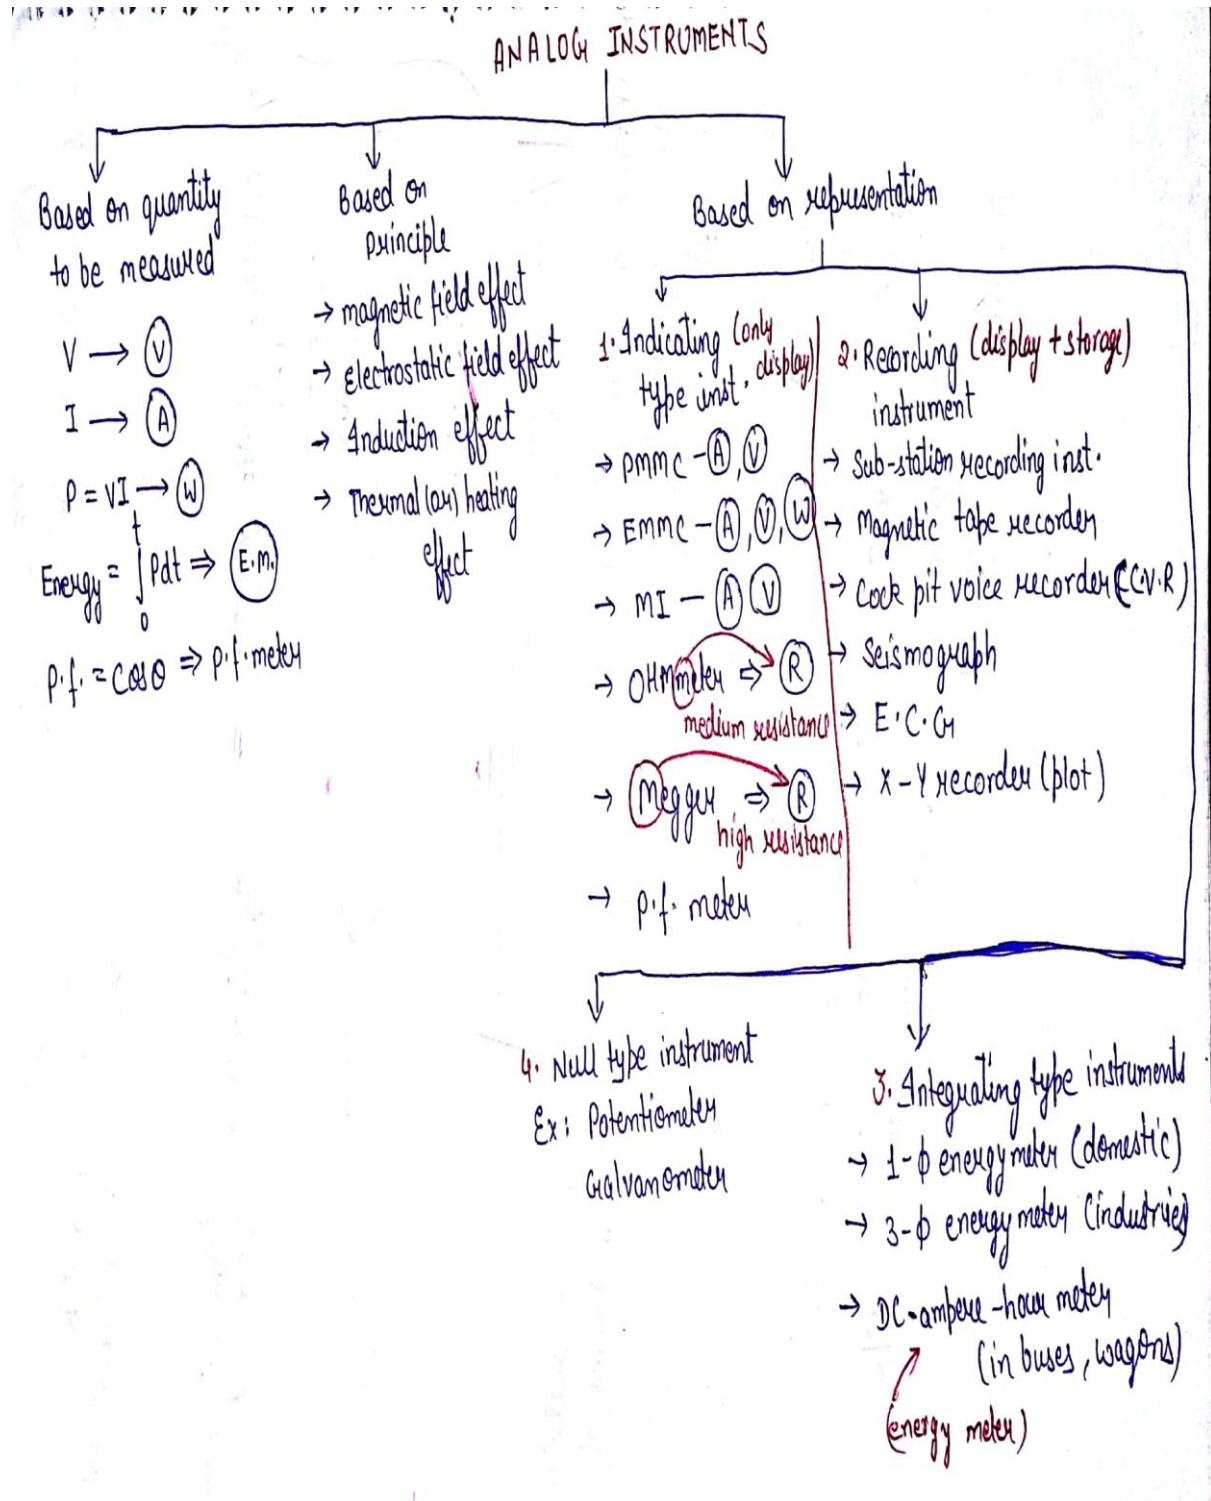 ANALOG INSTRUMENTS
Based on quantity
to be measured
V → V
I → A
P = VI → W
Energy = ∫₀ᵗ Pdt ⇒ E.M.
P.f. = cosθ ⇒ p.f. meter
Based on
principle
→ magnetic field effect
→ Electrostatic field effect
→ Induction effect
→ Thermal (or) heating
effect
Based on representation
1. Indicating (only
display)
type inst.
→ PMMC - A, V
→ EMMC - A, V, W
→ MI - A V
→ OHMmeter ⇒ R
medium resistance
→ Megger ⇒ R
high resistance
→ P.f. meter
2. Recording (display + storage)
instrument
→ Sub-station recording inst.
→ Magnetic tape recorder
→ Cock pit voice recorder (C.V.R)
→ Seismograph
→ E.C.G
→ X-Y recorder (plot)
4. Null type instrument
Ex: Potentiometer
Galvanometer
3. Integrating type instruments
→ 1-ϕ energy meter (domestic)
→ 3-ϕ energy meter (industries)
→ DC-ampere-hour meter
(in buses, wagons)
(energy meter)